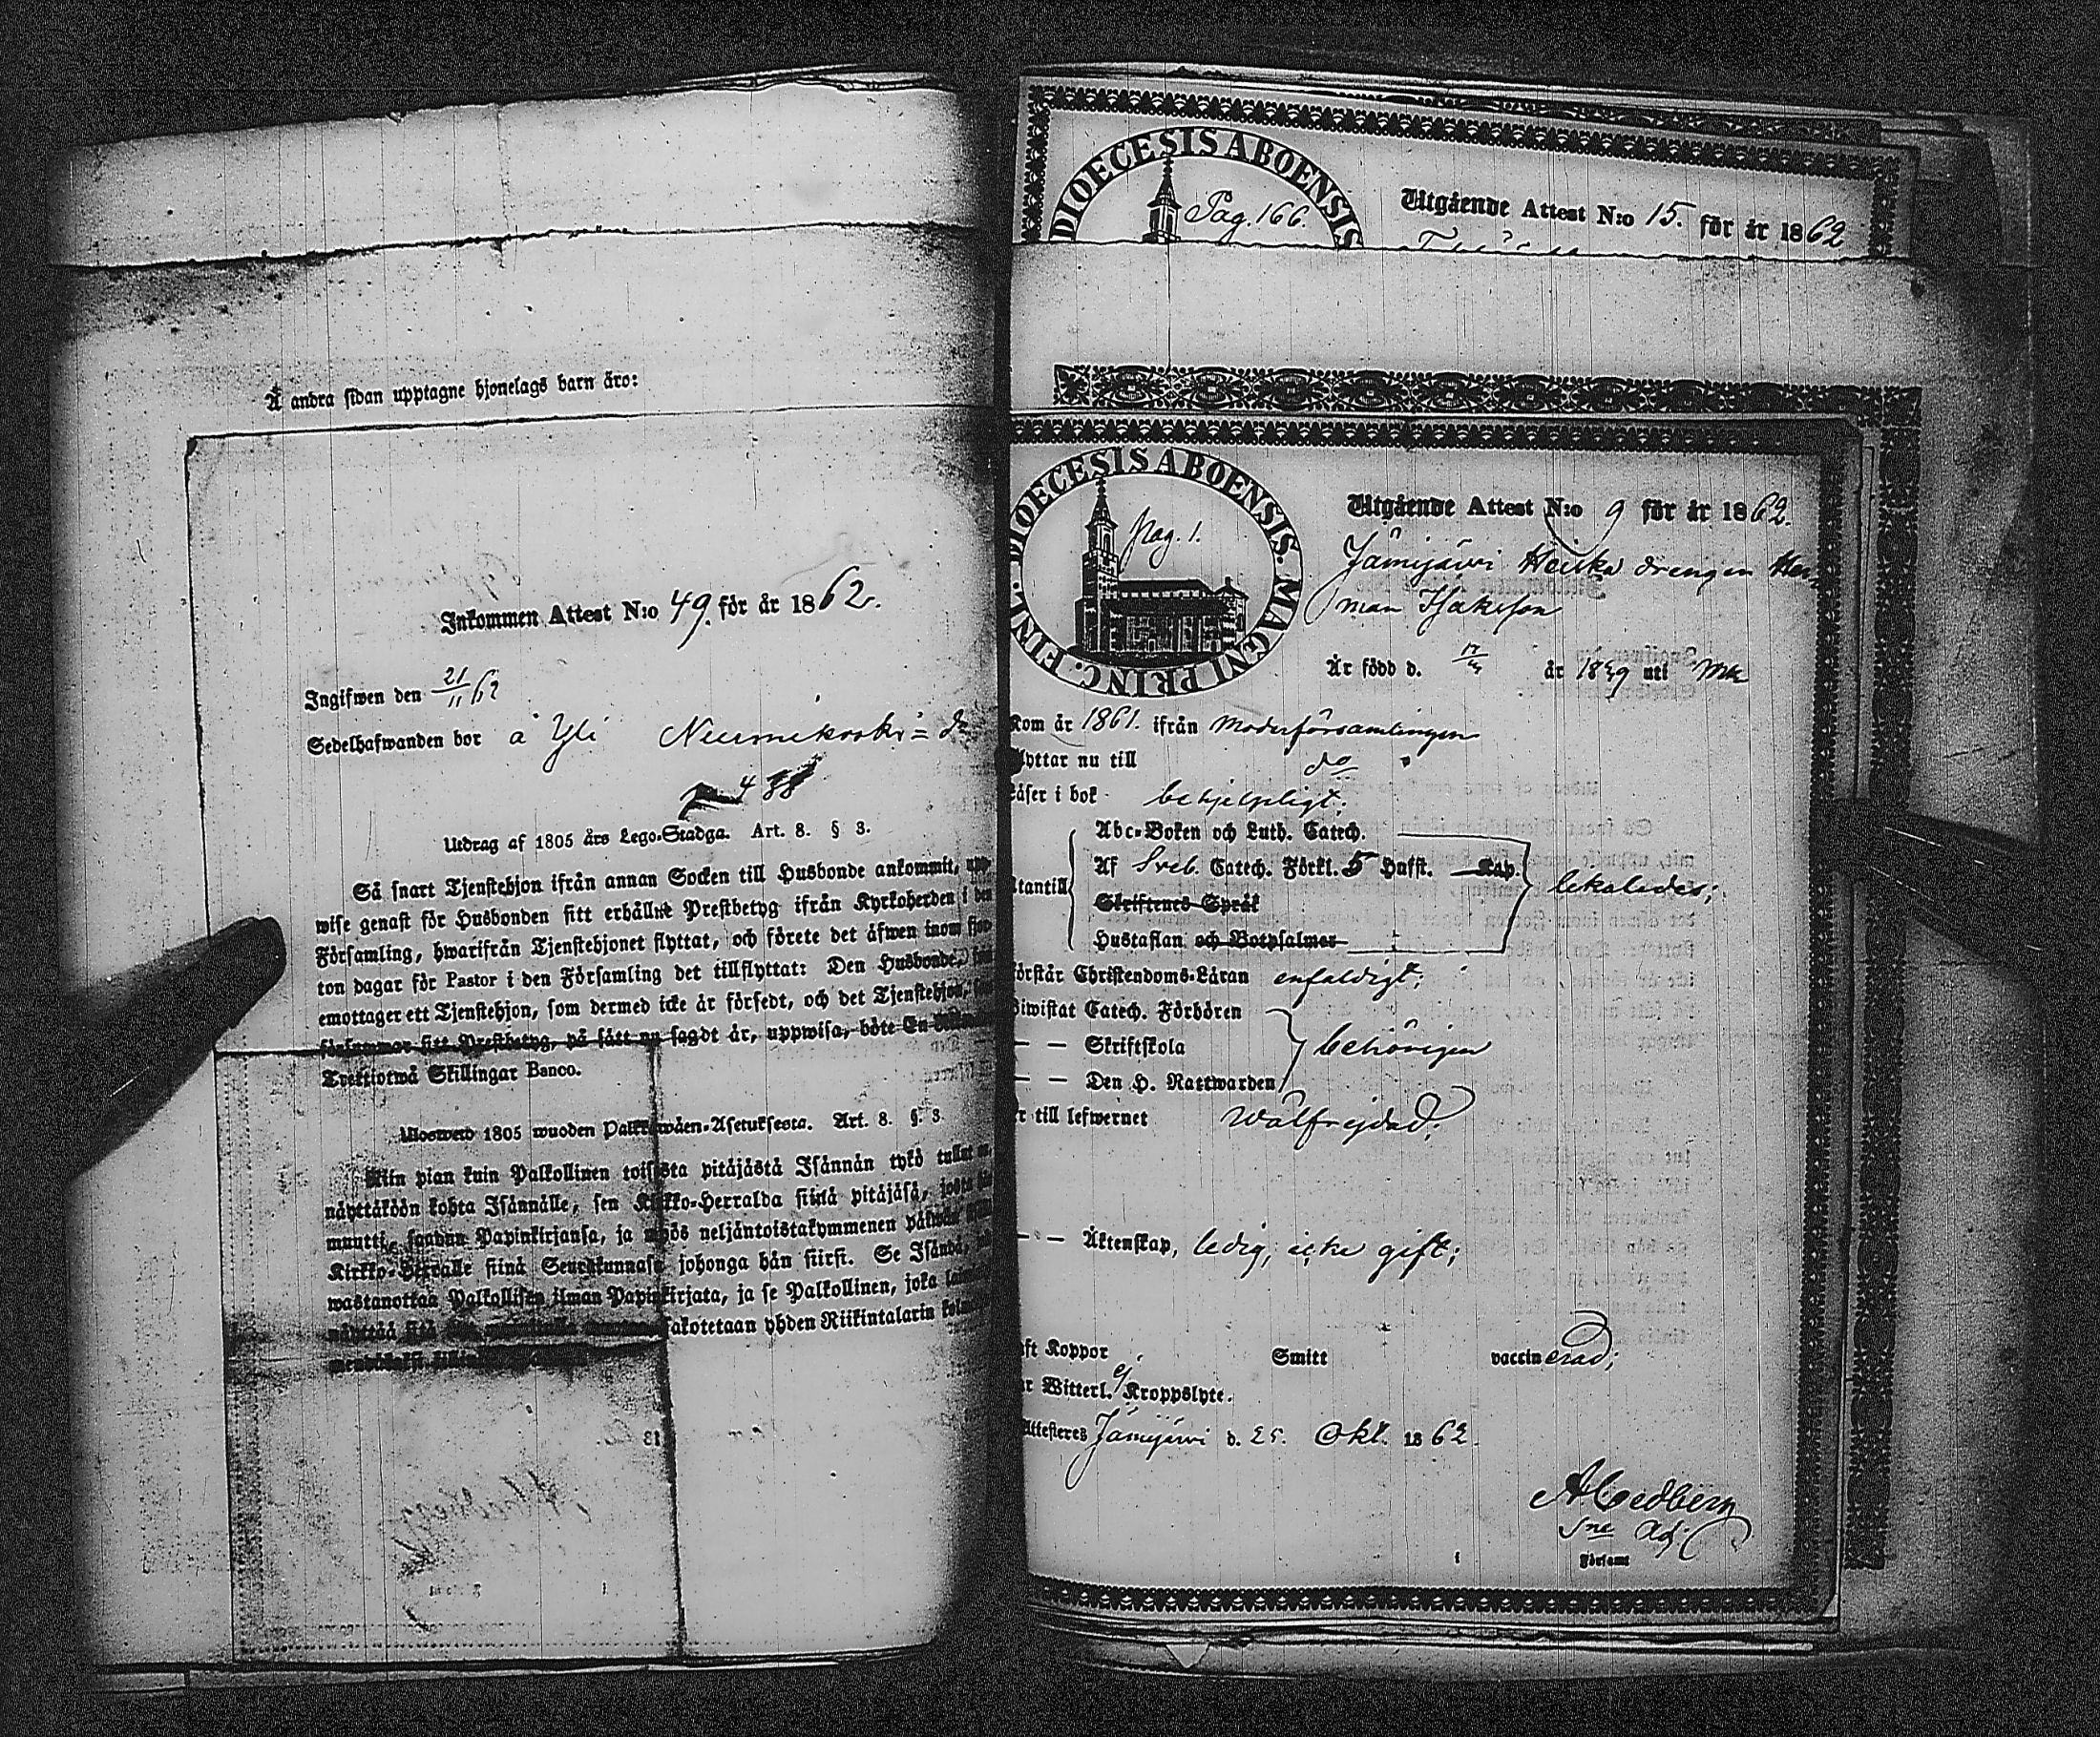 Å andra sidan upptagne hjonelags barn äro:
Inkommen Attest N:o 49. för år 1862.
Ingifwen den 21/11 62
Sedelhafwanden bor å Yli
Utdrag af 1805 års Lego-Stadga. Art. 8. § 3.
Så snart Tjenstehjon ifrån annan Socken till Husbonde ankommit, upp-
wise genast för Husbonden sitt erhållne Prestbetyg ifrån Kyrkoherden i den
Församling, hwarifrån Tjenstehjonet flyttat, och förete det äfwen inom fjor-
ton dagar för Pastor i den Församling det tillflyttat: Den Husbonde,
emottager ett Tjenstehjon, som dermed icke är försedt, och det Tjenstehjon,
försummar sitt Prestbetyg, på sätt nu sagdt är, uppwisa, böte En
Trettiotwå Skillingar Banco.
Ulosweto 1805 wuoden Palkkawäen-Asetuksesta. Art. 8. §. 3.
Niin pian kuin Palkollinen toisesta pitäjästä Isännän tykö tullut
näyttäköön kohta Isännälle, sen Kirkko-Herralda siinä pitäjäsä, josta
muutti, saadun Papinkirjansa, ja myös neljäntoistakymmenen päiwän
Kirkko-Herralle siinä Seurakunnase johonga hän siirsi. Se Isändä,
wastanottaa Palkollisen ilman Papinkirjata, ja se Palkollinen, joka
näyttää sitä
sakotetaan yhden Riikintalarin
DIOECESIS ABOENSIS
Pag. 166.
Utgående Attest N:o 15. för år 1862
DIOECESIS ABOENSIS. MAGNI PRINC. FINL.
Pag. 1.
Utgående Attest N:o 9 för år 1862.
Jämijärvi Heiska drengen Her-
man Isaksson
Är född d. år 1839 uti
Kom år 1861. ifrån Moderförsamlingen
flyttar nu till do
Läser i bok behjelpligt;
Abc-Boken och Luth. Catech.
Utantill Af Sveb. Catech. Förkl. 5 Hufst. Kap.
Skriftenes Språk
Hustaflan och Botpsalmer
lekaledes;
Förstår Christendoms-Läran enfaldigt;
Biwistat Catech. Förhören
— — Skriftskola
— — Den H. Nattwarden
behörigen
Är till lefwernet wälfrejdad;
— — Äktenskap, ledig, icke gift;
Haft Koppor Smitt vaccinerad;
Har Witterl. ej Kroppslyte.
Attesteres Jämijärvi d. 25. Okt. 1862.